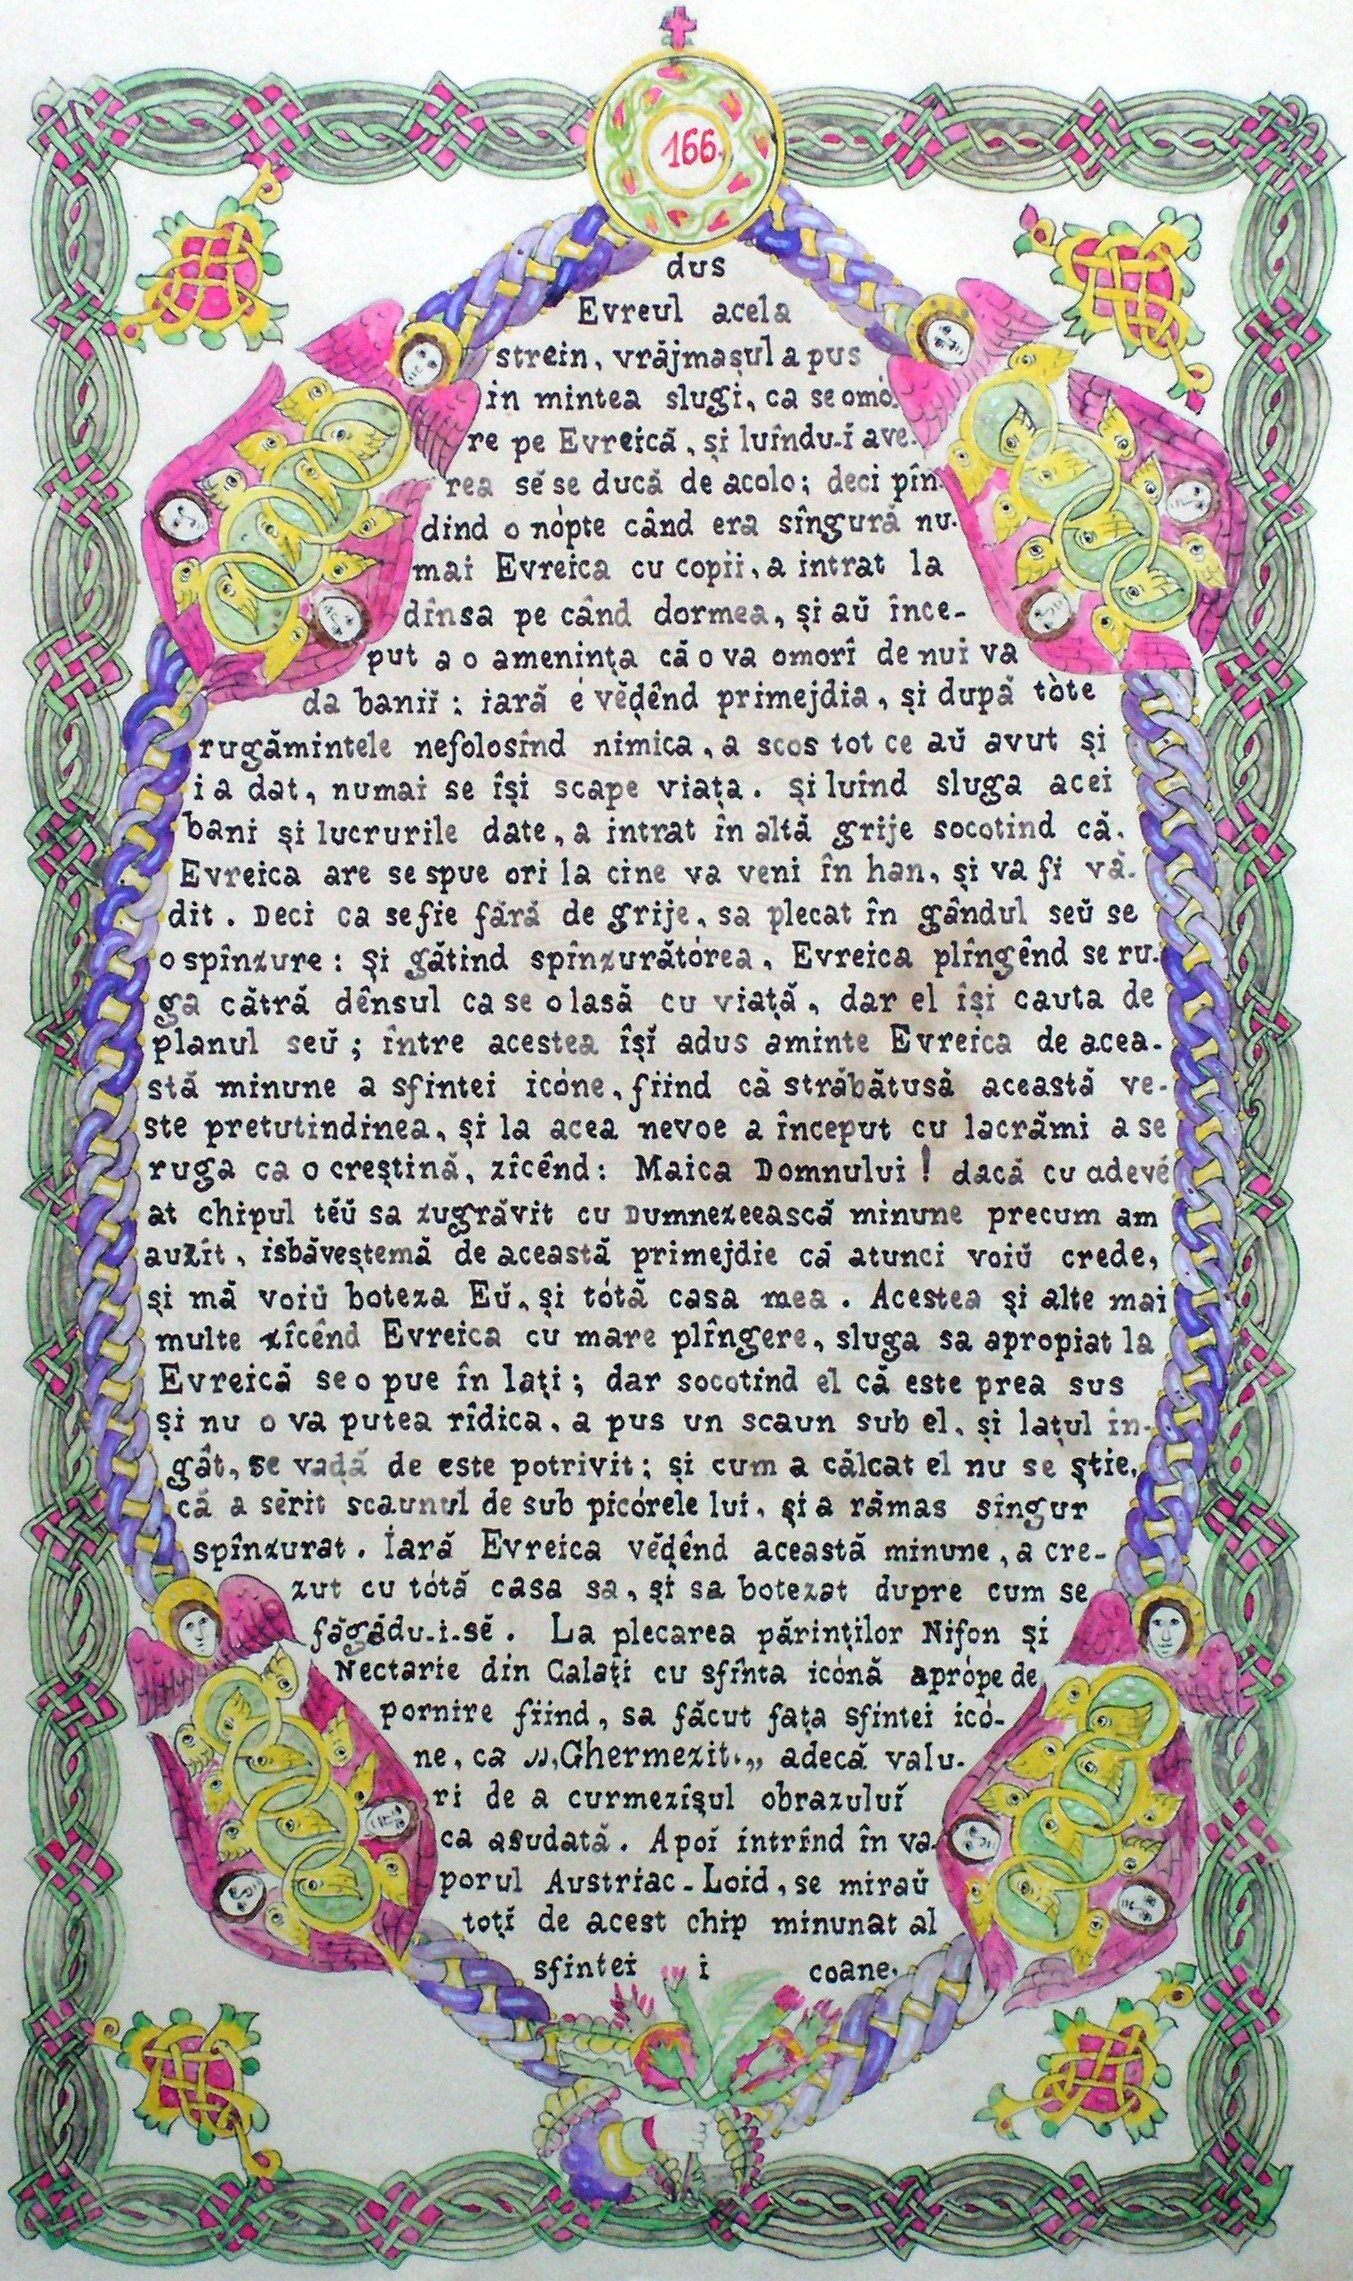 166.
dus
Evreul acela
strein, vrăjmașul a pus
in mintea slugi, ca se omó.
re pe Evreică, și luîndu-ĭ ave-
rea sĕ se ducă de acolo; deci pîn.
dind o nópte când era sîngură nu-
mai Evreica cu copii, a intrat la
dînsa pe când dormea, și aŭ înce-
put a o amenința că o va omorî de nui va
da baniĭ; iară é vĕḑênd primejdia, și după tòte
rugămintele nefolosînd nimica, a scos tot ce aŭ avut și
i a dat, numai se își scape viața. și luînd sluga acei
bani și lucrurile date, a intrat în altă grije socotind că.
Evreica are se spue ori la cine va veni în han, și va fi vă.
dit. Deci ca se fie fără de grije, sa plecat în gândul seŭ se
o spînzure: Și gătind spînzurătórea, Evreica plîngênd se ru.
ga cătră dênsul ca se o lasă cu viață, dar el își cauta de
planul seŭ; între acestea îșĭ adus aminte Evreica de acea-
stă minune a sfintei icóne, fiind că străbătusă această ve-
ste pretutindinea, și la acea nevoe a început cu lacrămi a se
ruga ca o creștină, zîcênd: Maica Domnului! dacă cu adevĕ
at chipul tĕŭ sa zugrăvit cu Dumnezeească minune precum am
auzît, isbăveștemă de această primejdie că atunci voiŭ crede,
și mă voiŭ boteza Eŭ, și tótă casa mea. Acestea și alte mai
multe zîcênd Evreica cu mare plîngere, sluga sa apropiat la
Evreică se o pue în lați; dar socotind el că este prea sus
și nu o va putea rîdica, a pus un scaun sub el, și lațul în.
gât, se vaḑă de este potrivit; și cum a călcat el nu se știe,
că a sĕrit scaunul de sub picórele lui, și a rămas sîngur
spînzurat. Iară Evreica vĕḑênd această minune, a cre-
zut cu tótă casa sa, și sa botezat dupre cum se
făgădu-i-sĕ. La plecarea părinților Nifon și
Nectarie din Galați cu sfînta icónă aprópe de
pornire fiind, sa făcut fața sfintei icó-
ne, ca „Ghermezit„ adecă valu-
ri de a curmezîșul obrazuluĭ
ca asudată. Apoĭ intrînd în va-
porul Austriac-Loid, se miraŭ
toțĭ de acest chip minunat al
sfintei i coane.